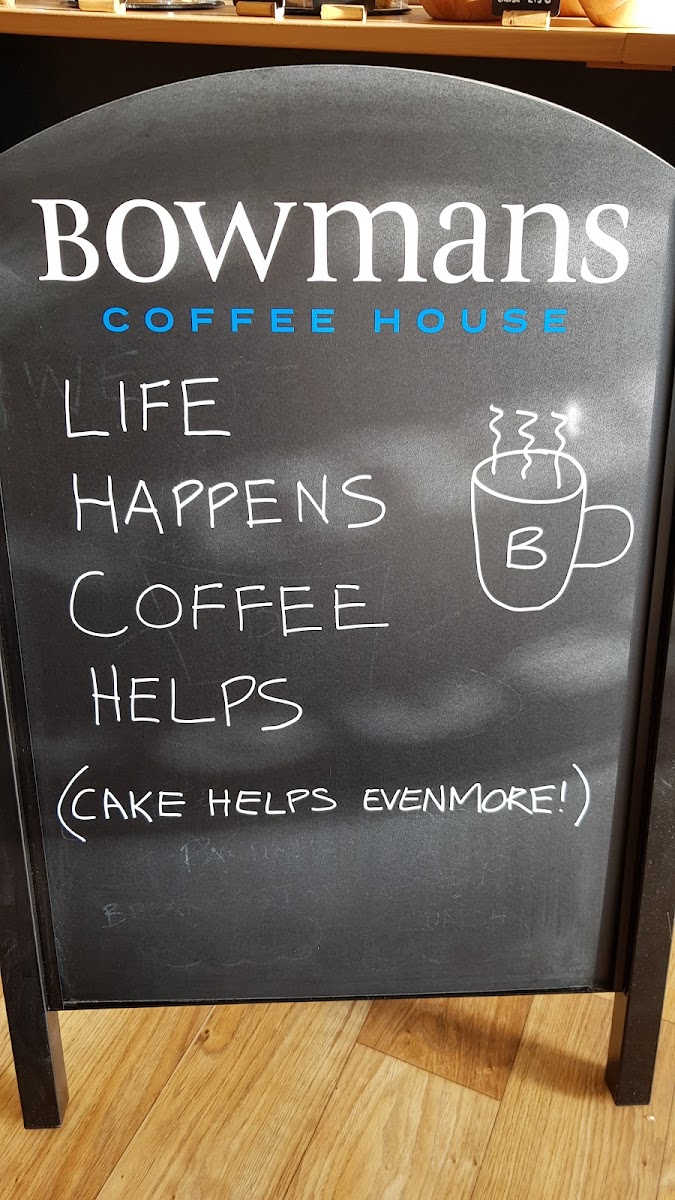 BOWmans
COFFEE HOUSE
LIFE
HAPPENS
COFFEE
HELPS
B
(CAKE HELPS EVENMORE!)